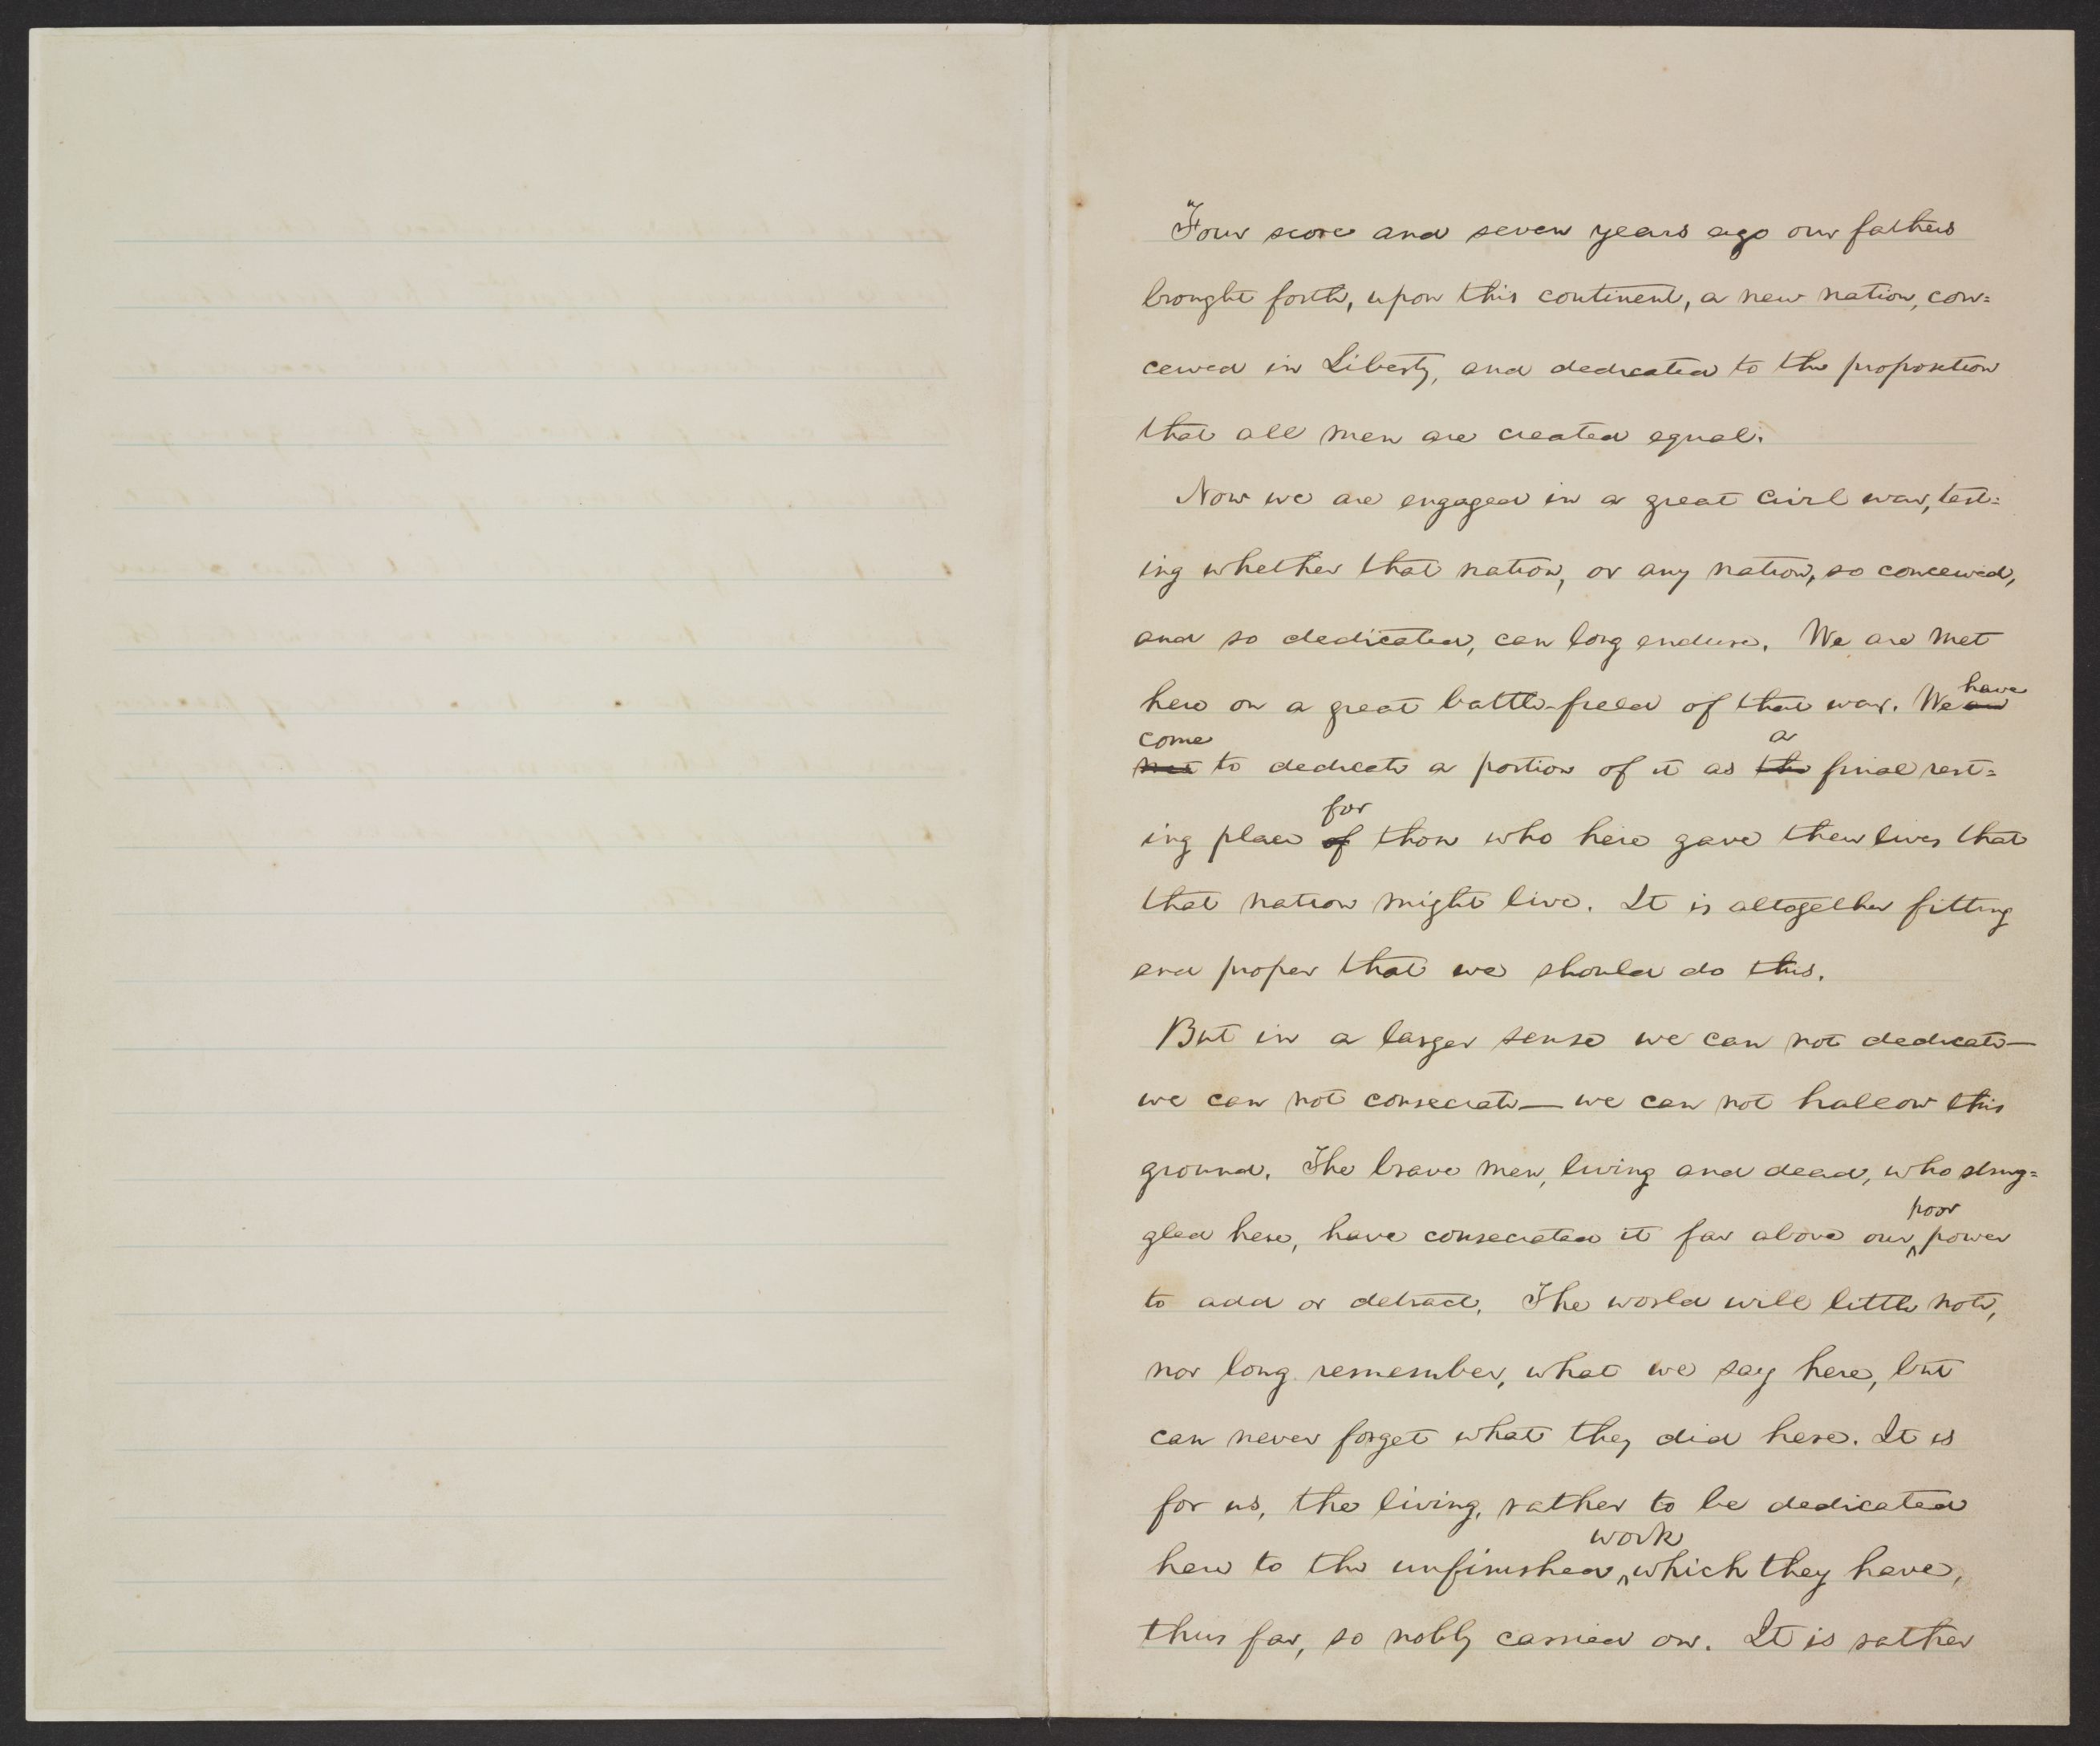 "Four score and seven years ago our fathers
brought forth, upon this continent, a new nation, con=
ceived in Liberty, and dedicated to the proposition
that all men are created equal.
Now we are engaged in a great civil war, test=
ing whether that nation, or any nation, so conceived,
and so dedicated, can long endure. We are met
here on a great battle-field of that war. We are have
met come to dedicate a portion of it as the a final rest=
ing place of for those who here gave their lives that
that nation might live. It is altogether fitting
and proper that we should do this.
But in a larger sense we can not dedicate—
we can not consecrate—we can not hallow this
ground. The brave men, living and dead, who strug=
gled here, have consecrated it far above our poor power
to add or detract. The world will little note,
nor long remember, what we say here, but
can never forget what they did here. It is
for us, the living, rather to be dedicated
here to the unfinished work which they have,
thus far, so nobly carried on. It is rather